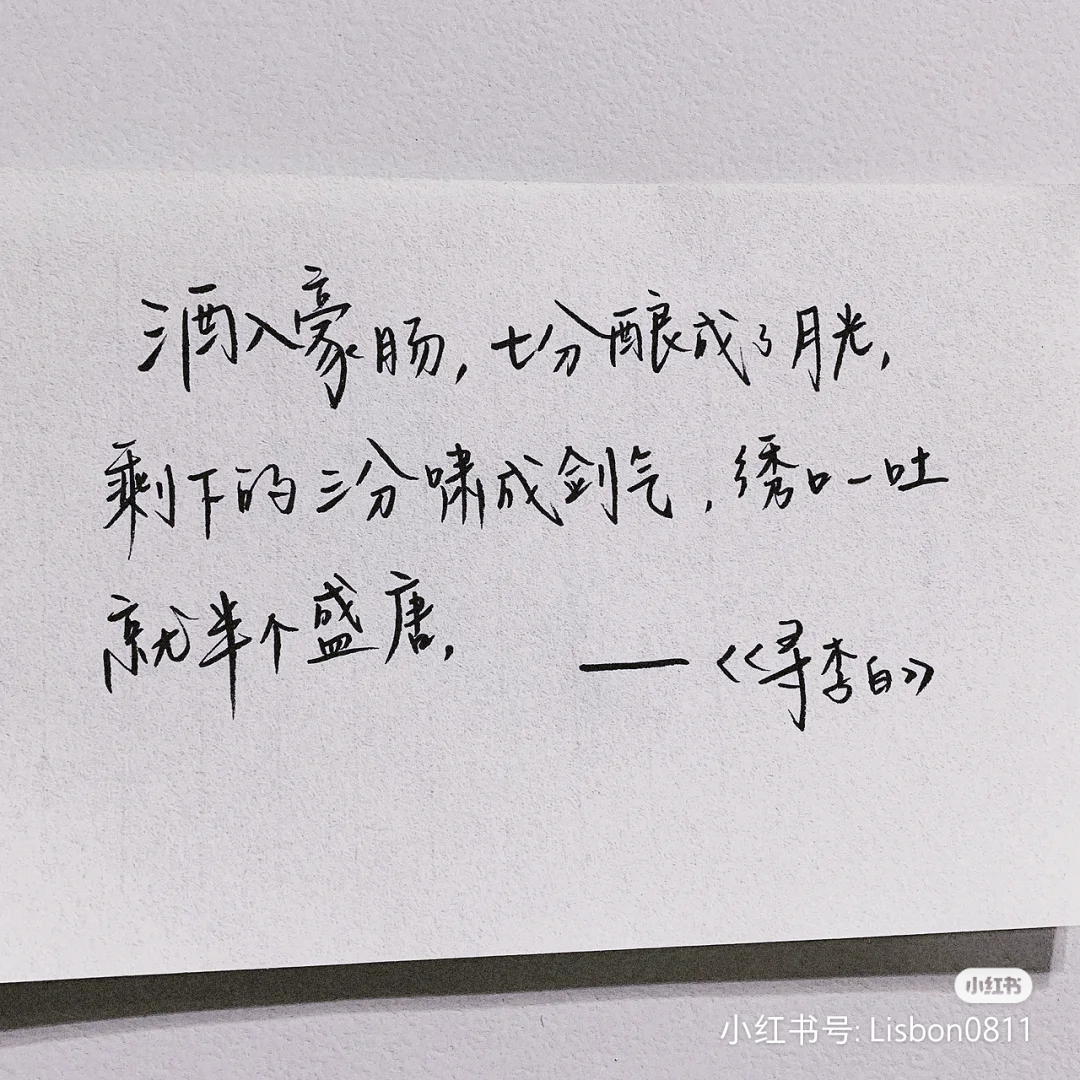 酒入豪肠，七分酿成了月光，
剩下的三分啸成剑气，绣口一吐
就半个盛唐，
——《寻李白》
小红书
小红书号: Lisbon0811